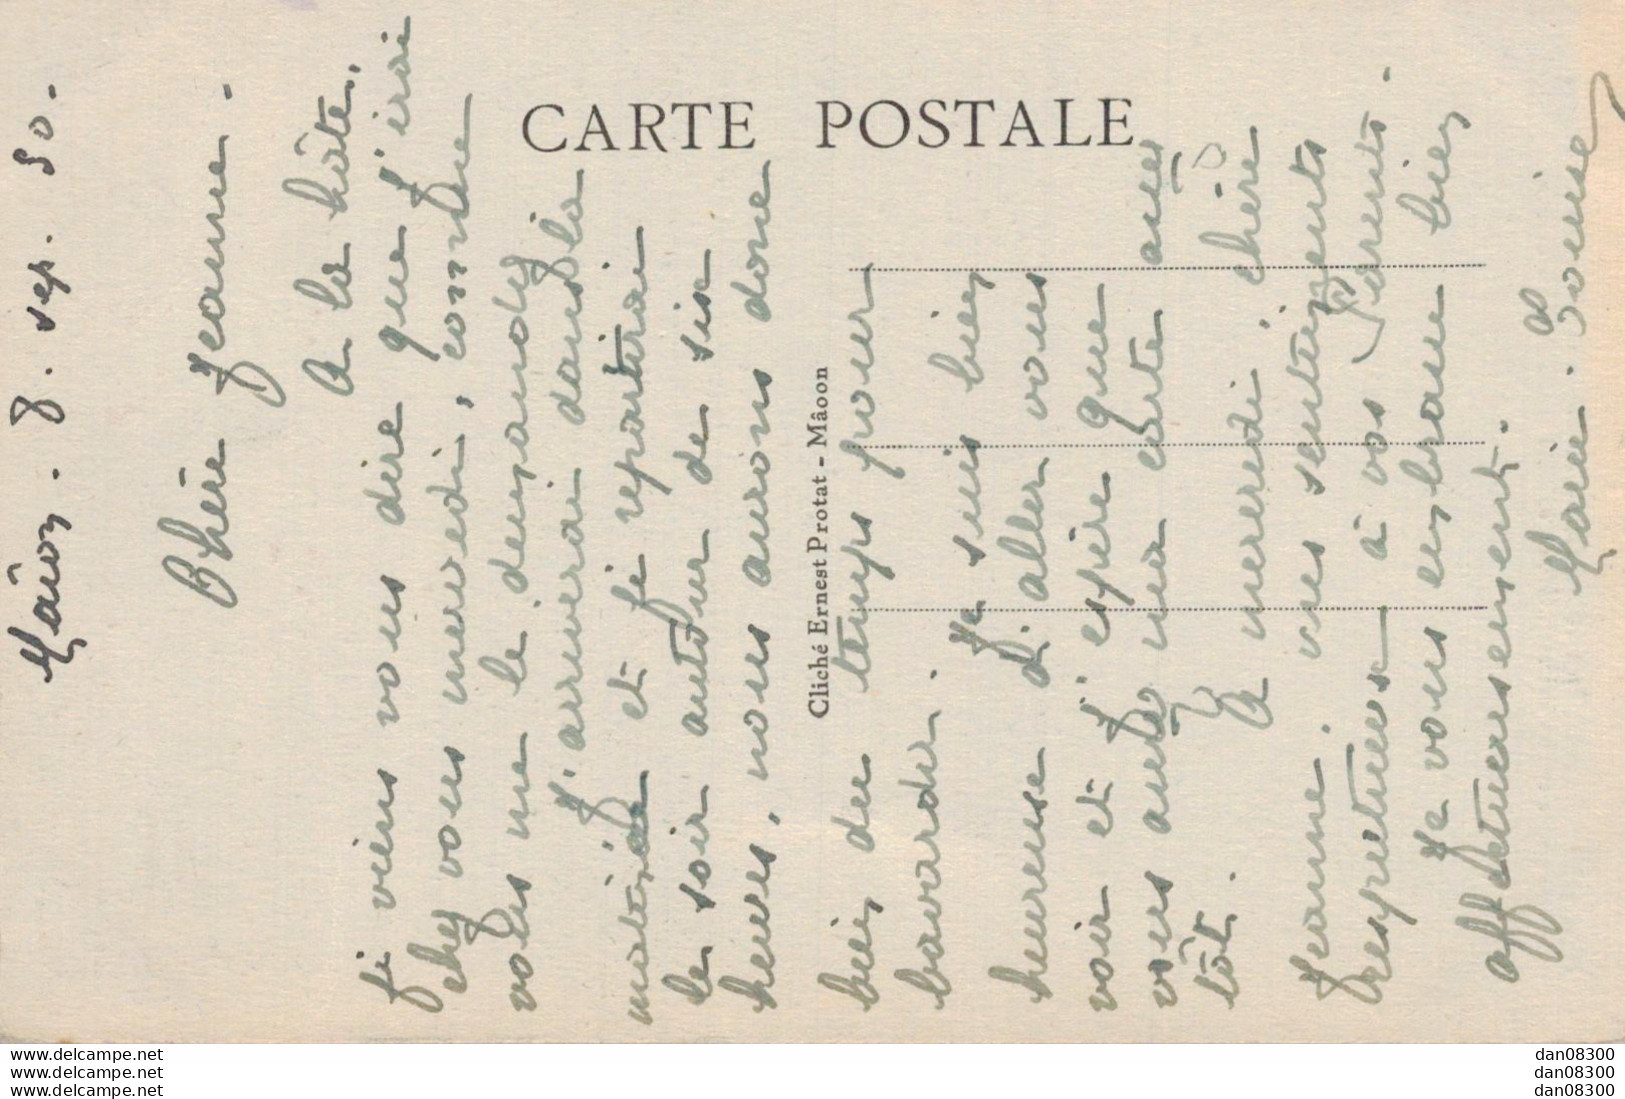 Mâcon. 8. sep. 30.
Chère Jeanne.
A la hâte,
je viens vous dire que j'irai
chez vous mercredi, comme
vous me le demandez
J'arriverai dans la
matinée et je repartirai
le soir autour de six
heures, nous aurons donc
bien du temps pour
bavarder.
Je suis bien
heureuse d'aller vous
voir et j'espère que
vous aurez ma carte assez
tôt.
A mercredi, chère
Jeanne. mes sentiments
respectueux à vos Parents.
Je vous embrasse bien
affectueusement.
Marie-Louise
CARTE POSTALE
Cliché Ernest Protat - Mâcon
www.delcampe.net
www.delcampe.net
www.delcampe.net
dan08300
dan08300
dan08300